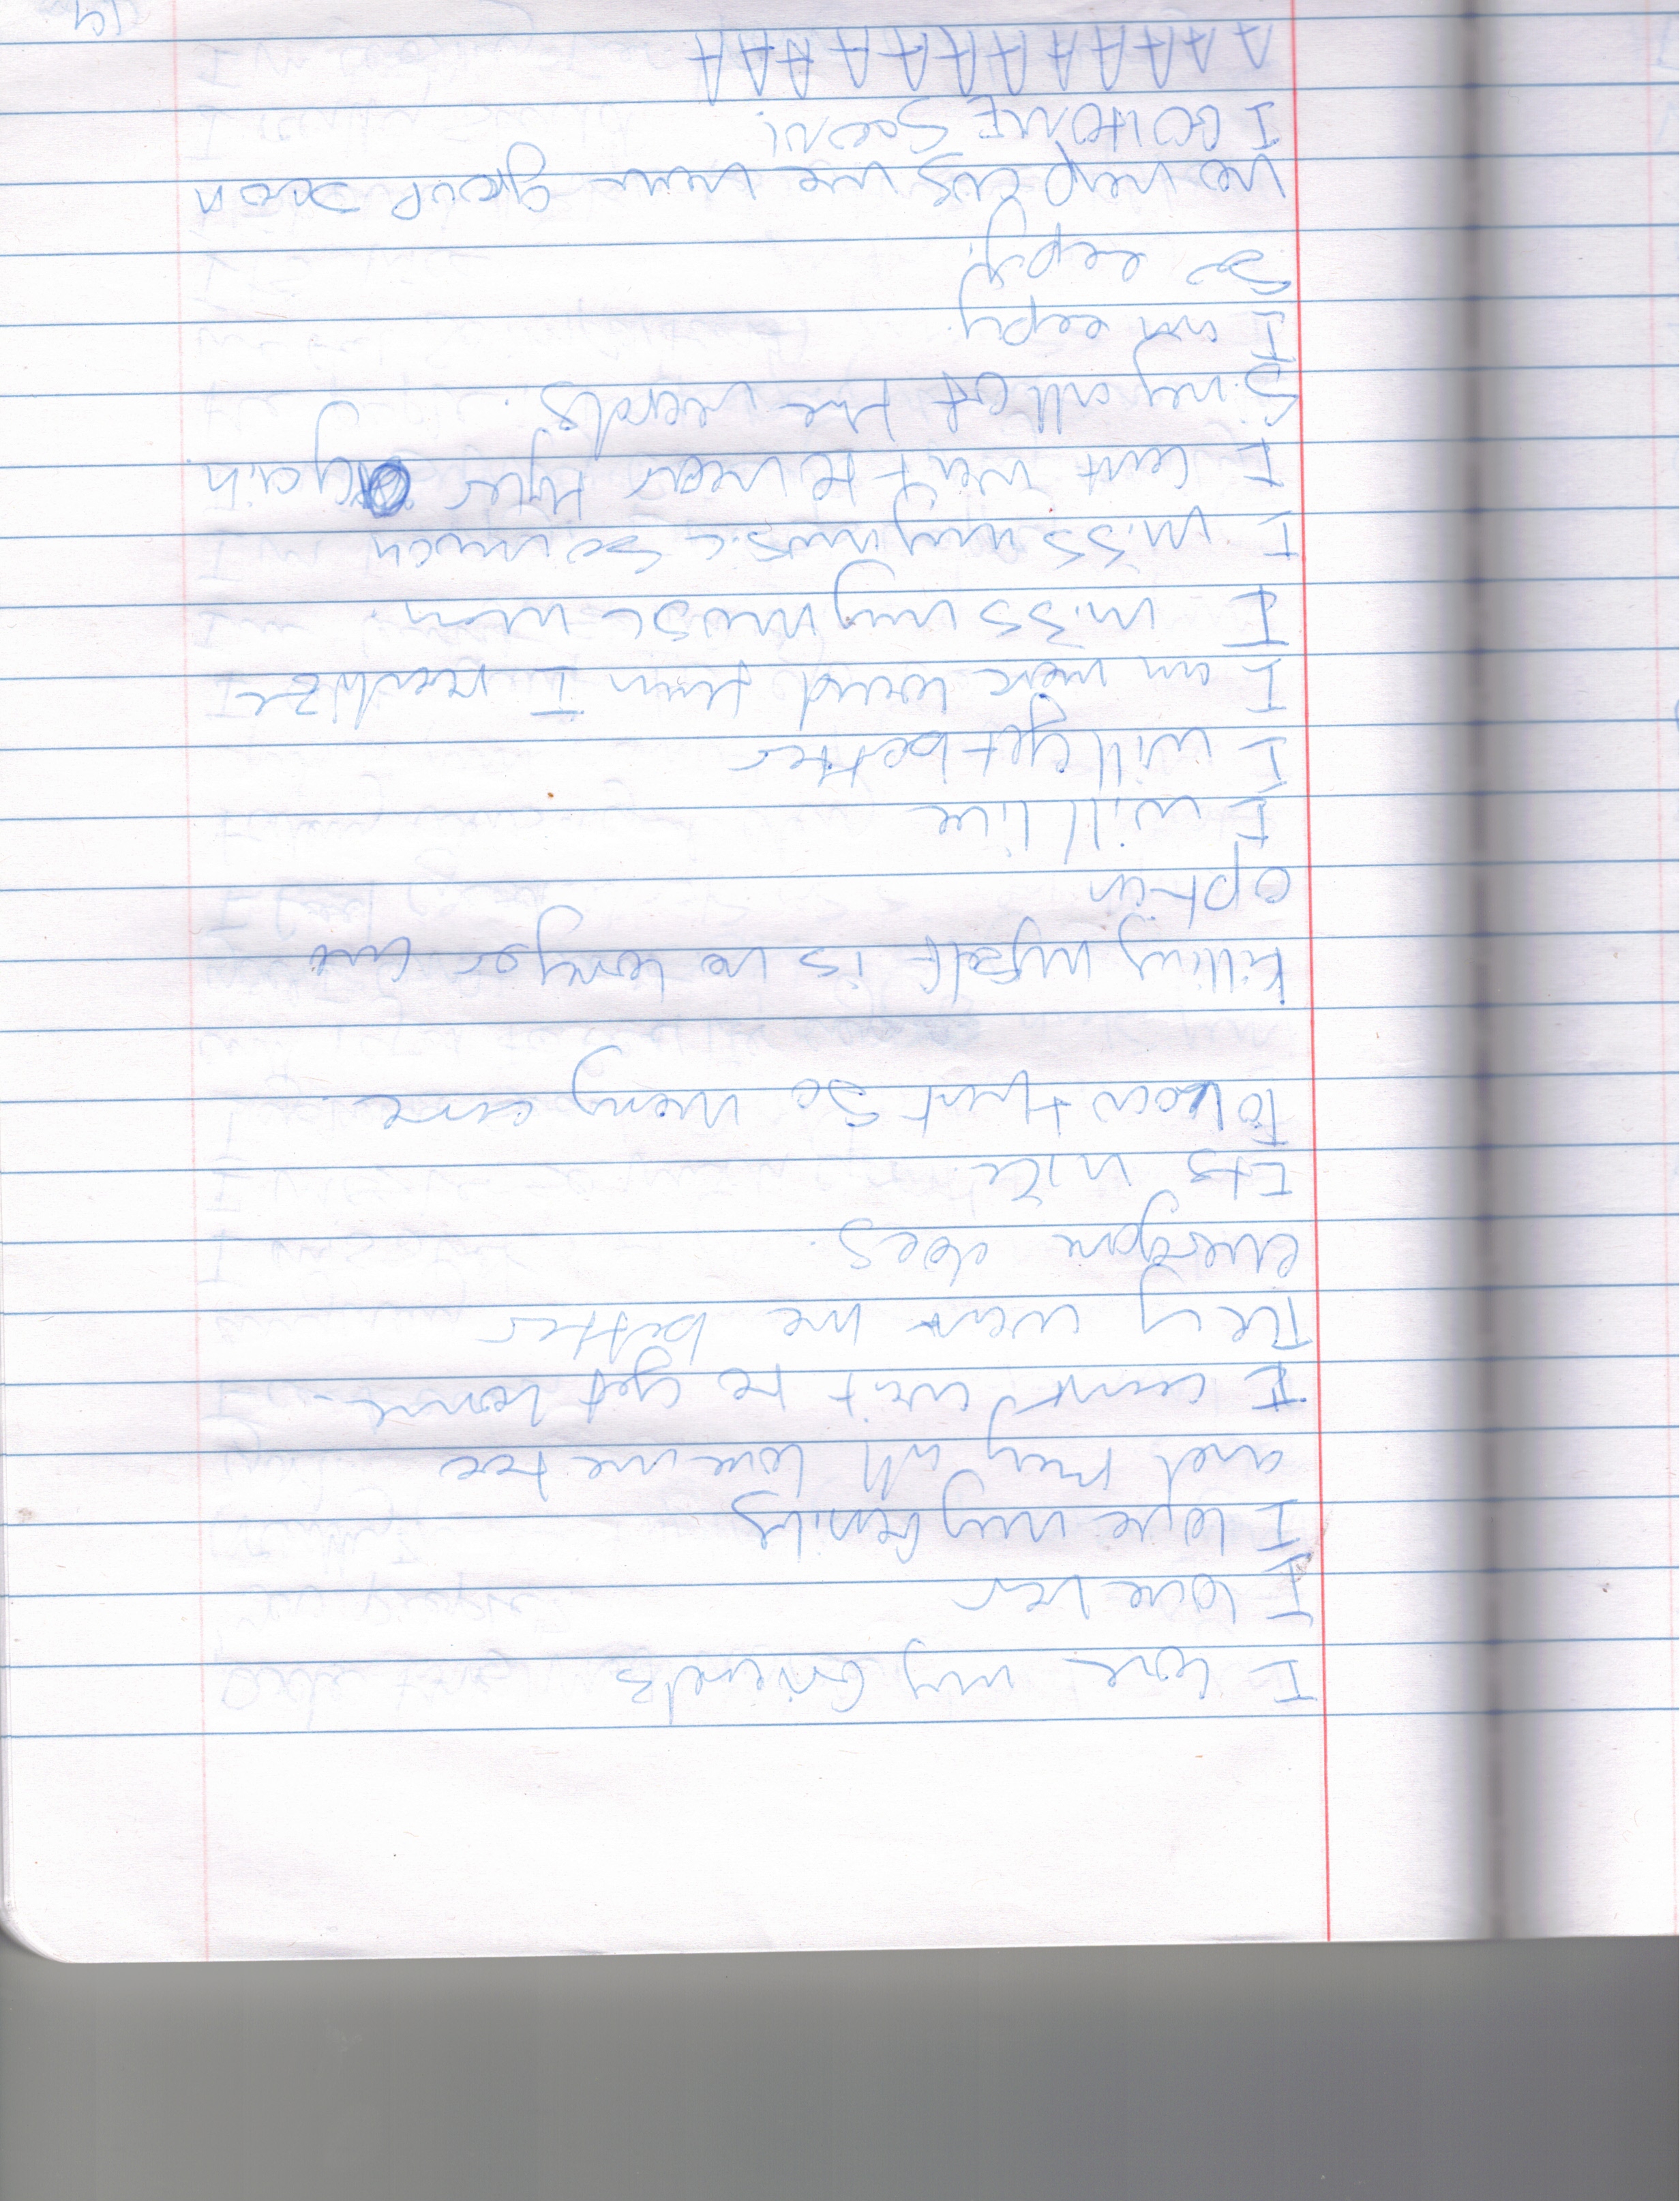 I love my friends
I love her
I love my family
and they all love me too
I cant wait to get home.
They want me better
everyone does.
Its nice
To know that so many care.
killing myself is no longer an
option
I will live
I will get better
I am more loved than I realize
I miss my music
I miss my music so much
I cant wait to hear tyler again.
Sing all of the words.
I am eepy.
So eepy!
no nap cus we have group soon
I GO HOME Soon!
A A A A A A A A A A A A A
19